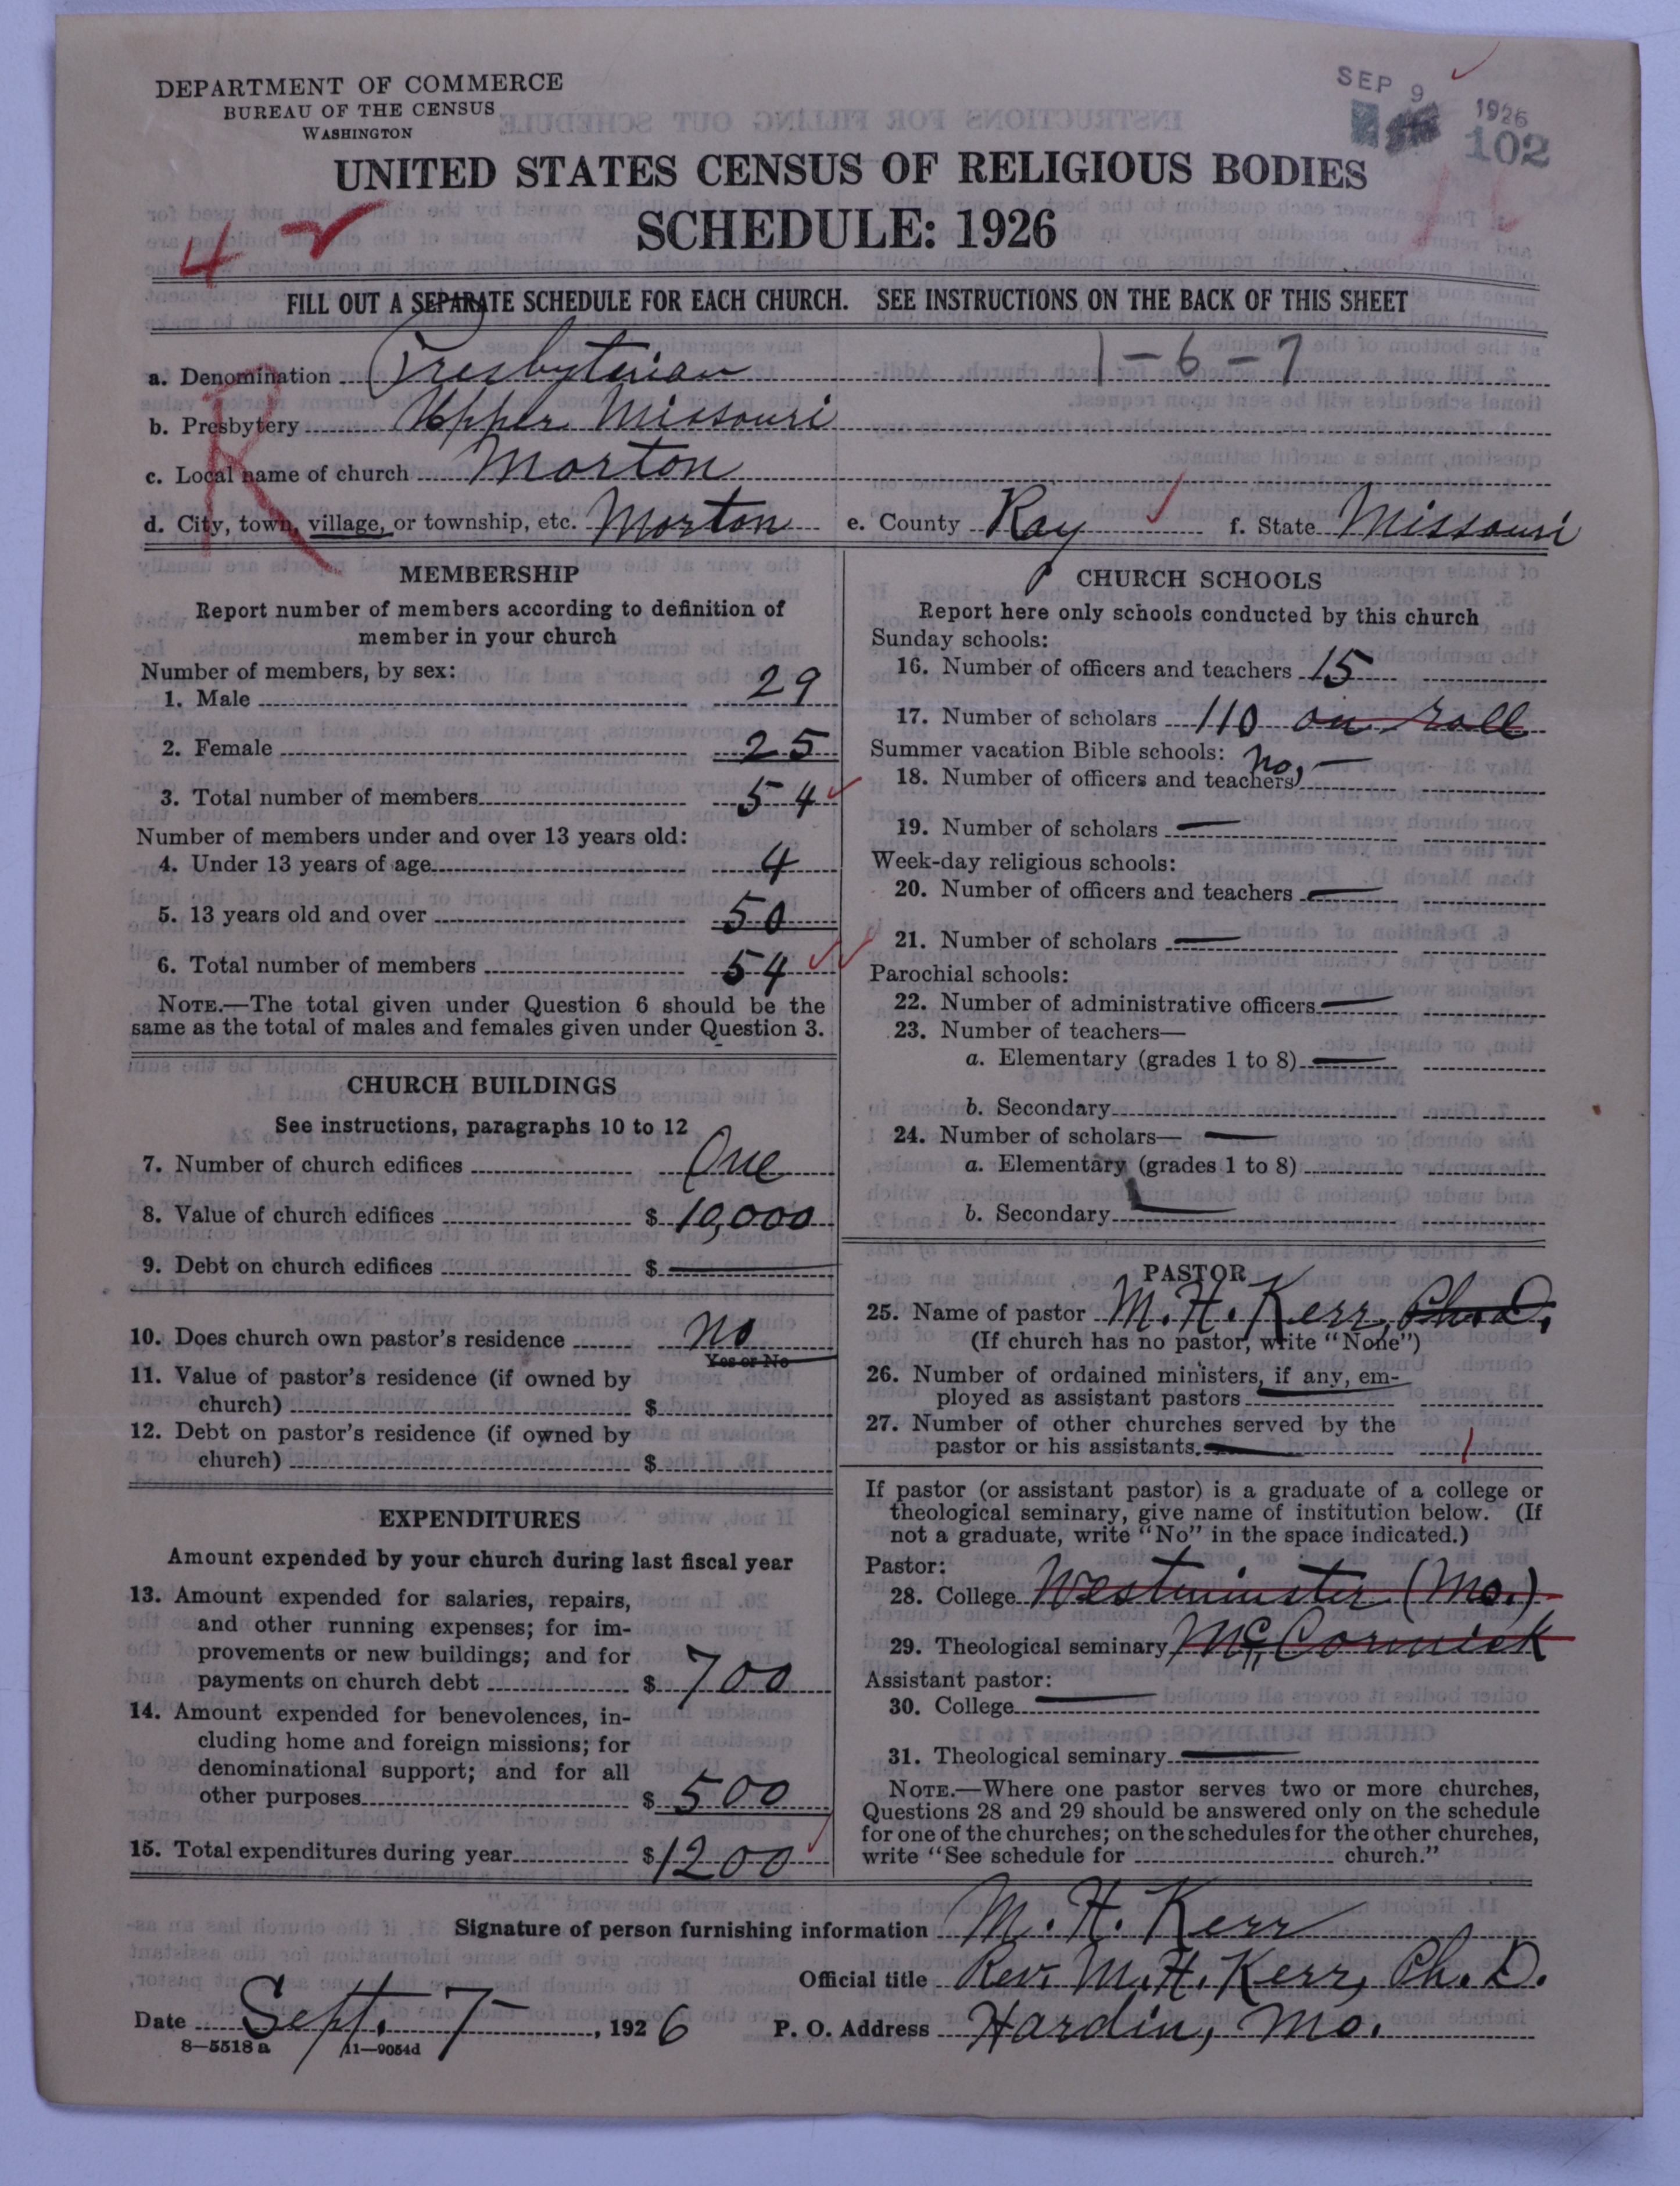 DEPARTMENT OF COMMERCE
BUREAU OF THE CENSUS
WASHINGTON
SEP 9 1926
102
UNITED STATES CENSUS OF RELIGIOUS BODIES
SCHEDULE: 1926
4
FILL OUT A SEPARATE SCHEDULE FOR EACH CHURCH. SEE INSTRUCTIONS ON THE BACK OF THIS SHEET
R
a. Denomination Presbyterian 1-6-7
b. Presbytery Upper Missouri
c. Local name of church Morton
d. City, town, village, or township, etc. Morton e. County Ray f. State Missouri
MEMBERSHIP
Report number of members according to definition of
member in your church
Number of members, by sex:
1. Male 29
2. Female 25
3. Total number of members 54
Number of members under and over 13 years old:
4. Under 13 years of age 4
5. 13 years old and over 50
6. Total number of members 54
NOTE.—The total given under Question 6 should be the
same as the total of males and females given under Question 3.
CHURCH BUILDINGS
See instructions, paragraphs 10 to 12
7. Number of church edifices One
8. Value of church edifices $ 10,000
9. Debt on church edifices $ —
10. Does church own pastor's residence No
Yes or No
11. Value of pastor's residence (if owned by
church) $
12. Debt on pastor's residence (if owned by
church) $
EXPENDITURES
Amount expended by your church during last fiscal year
13. Amount expended for salaries, repairs,
and other running expenses; for im-
provements or new buildings; and for
payments on church debt $ 700
14. Amount expended for benevolences, in-
cluding home and foreign missions; for
denominational support; and for all
other purposes $ 500
15. Total expenditures during year $ 1200
CHURCH SCHOOLS
Report here only schools conducted by this church
Sunday schools:
16. Number of officers and teachers 15
17. Number of scholars 110 on roll
Summer vacation Bible schools:
18. Number of officers and teachers No, —
19. Number of scholars —
Week-day religious schools:
20. Number of officers and teachers —
21. Number of scholars —
Parochial schools:
22. Number of administrative officers —
23. Number of teachers—
a. Elementary (grades 1 to 8) —
b. Secondary
24. Number of scholars— —
a. Elementary (grades 1 to 8)
b. Secondary —
PASTOR
25. Name of pastor M. H. Kerr, Ph.D.
(If church has no pastor, write "None")
26. Number of ordained ministers, if any, em-
ployed as assistant pastors —
27. Number of other churches served by the
pastor or his assistants. — 1
If pastor (or assistant pastor) is a graduate of a college or
theological seminary, give name of institution below. (If
not a graduate, write "No" in the space indicated.)
Pastor:
28. College Westminster (Mo.)
29. Theological seminary McCormick
Assistant pastor:
30. College —
31. Theological seminary —
NOTE.—Where one pastor serves two or more churches,
Questions 28 and 29 should be answered only on the schedule
for one of the churches; on the schedules for the other churches,
write "See schedule for church."
Signature of person furnishing information M. H. Kerr
Official title Rev. M. H. Kerr, Ph. D.
Date Sept. 7, 1926 P. O. Address Hardin, Mo.
8—5518 a 11—9054d